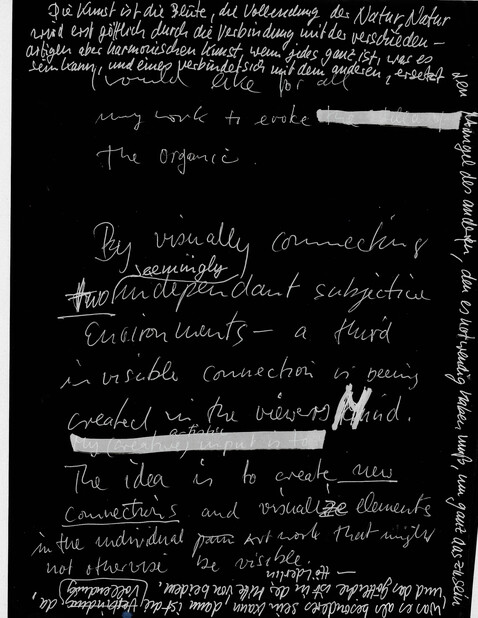 Die Kunst ist die Blüte, die Vollendung der Natur, Natur
wird erst göttlich durch die Verbindung mit der verschieden-
artigen aber harmonischen Kunst, wenn jedes ganz ist, was es
sein kann, und eines verbindet sich mit dem anderen, ersetzt
den Mangel des anderen, den es notwendig haben muß, um ganz das zu sein
was es als besonderes sein kann, dann ist die Vollendung da,
und das göttliche ist in der Mitte von beiden.
— Hölderlin
I would like for all
my work to evoke
the organic.
By visually connecting
seemingly
two independant subjective
Environments — a third
invisible connection is being
created in the viewers Mind.
artistic
My (creative) input is to
The idea is to create new
connections and visualize elements
in the individual art work that might
not otherwise be visible.